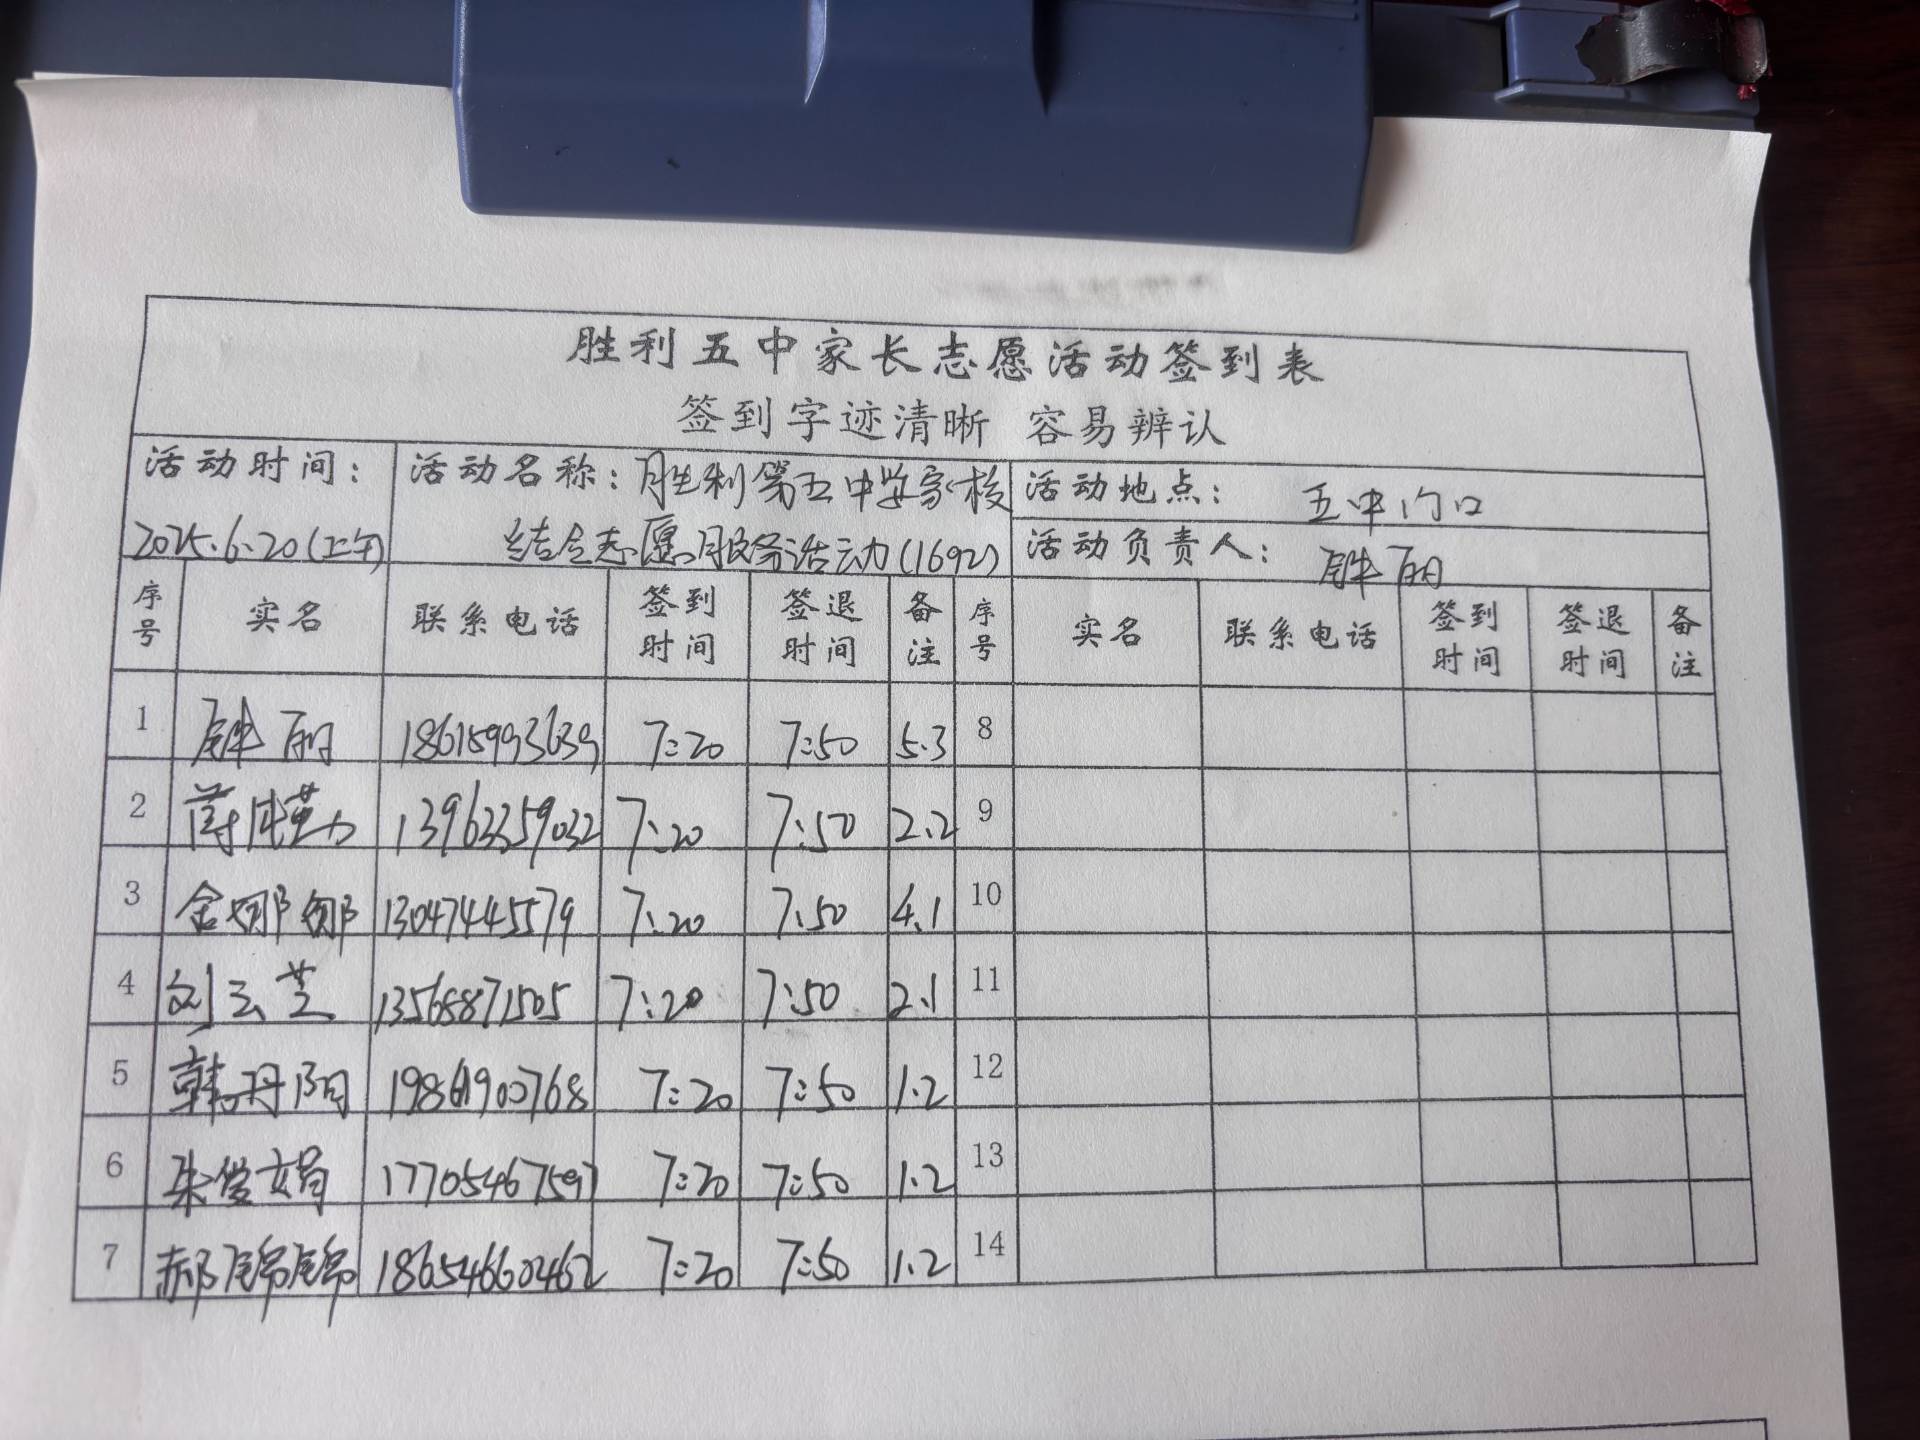 胜利五中家长志愿活动签到表
签到字迹清晰 容易辨认
活动时间：
2025.6.20(上午)
活动名称：胜利第五中学家校
结合志愿服务活动(1692)
活动地点： 五中门口
活动负责人： 丽
序号 实名 联系电话 签到时间 签退时间 备注 序号 实名 联系电话 签到时间 签退时间 备注
1 丽 18615993639 7:20 7:50 5.3 8
2 13963359032 7:20 7:50 2.2 9
3 金娜娜 13047445579 7:20 7:50 4.1 10
4 刘云芝 13568871505 7:20 7:50 2.1 11
5 韩丹阳 19861900768 7:20 7:50 1.2 12
6 朱俊娟 17705467597 7:20 7:50 1.2 13
7 郝 18654660462 7:20 7:50 1.2 14